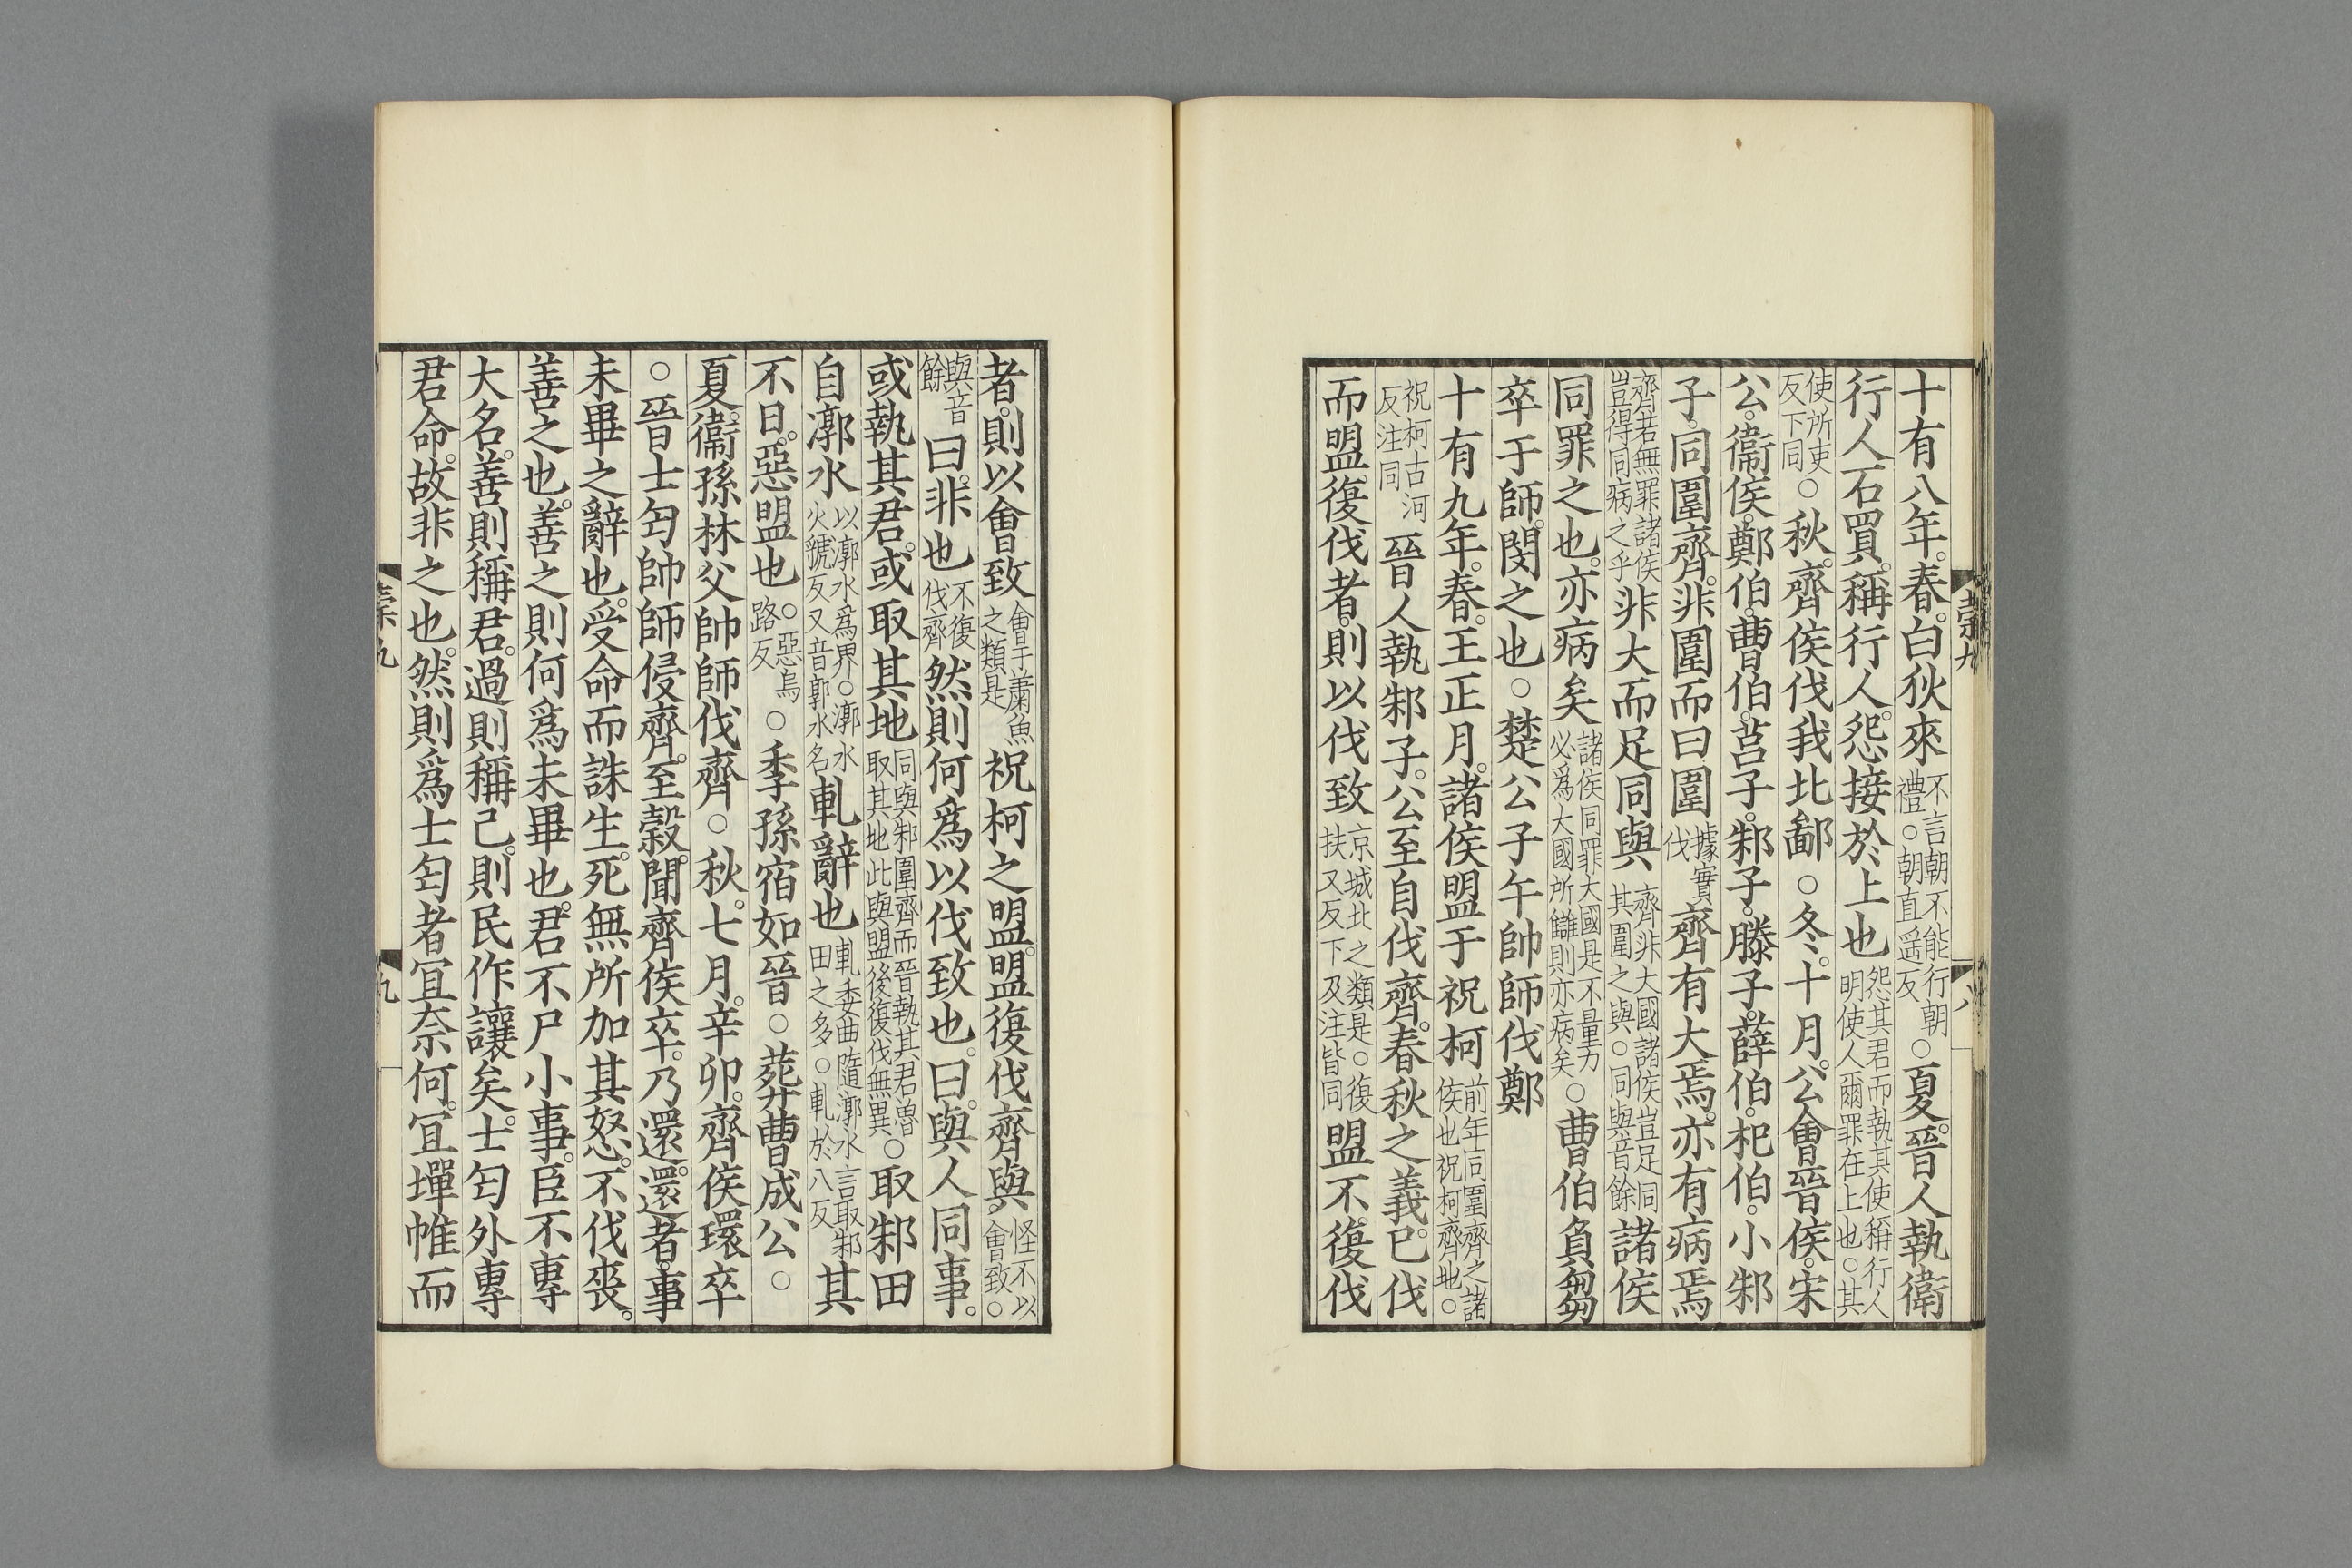 十有八年。春。白狄來不言朝不能行朝禮○朝直遥反○夏。晉人執衛
行人石買。稱行人。怨接於上也怨其君而執其使稱行人明使人爾罪在上也○其
使所吏反下同○秋。齊侯伐我北鄙○冬。十月。公會晉侯。宋
公。衞侯。鄭伯。曹伯。莒子。邾子。滕子。薛伯。杞伯。小邾
子。同圍齊。非圍而曰圍據實伐齊有大焉。亦有病焉
齊若無罪諸侯豈得同病之乎非大而足同與齊非大國諸侯豈足同其圍之與○同與音餘諸侯
同罪之也。亦病矣諸侯同罪大國是不量力必爲大國所讎則亦病矣○曹伯負芻
卒于師。閔之也○楚公子午帥師伐鄭
十有九年。春。王正月。諸侯盟于祝柯前年同圍齊之諸侯也祝柯齊地○
祝柯古河反注同晉人執邾子。公至自伐齊。春秋之義。已伐
而盟。復伐者。則以伐致京城北之類是○復扶又反下及注皆同盟不。復伐
者。則以會致會于蕭魚之類是祝柯之盟。盟復伐齊與。怪不以會致○
與音餘曰。非也不復伐齊然則何爲以伐致也。曰。與人同事。
或執其君。或取其地同與邾圍齊而晉執其君魯取其地此與盟後復伐無異○取邾田
自漷水以漷水爲界○漷水火虢反又音郭水名軋辭也軋委曲隨漷水言取邾田之多○軋於八反其
不日。惡盟也○惡烏路反○季孫宿如晉○葬曹成公○
夏。衞孫林父帥師伐齊○秋。七月。辛卯。齊侯環卒
○晉士匄帥師侵齊。至穀。聞齊侯卒。乃還。還者。事
未畢之辭也。受命而誅生。死無所加其怒。不伐喪。
善之也。善之則何爲未畢也。君不尸小事。臣不專
大名。善則稱君。過則稱己。則民作讓矣。士匄外專
君命。故非之也。然則爲士匄者宜奈何。宜墠帷而